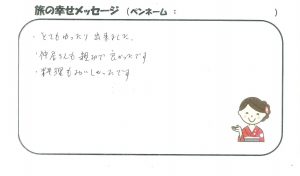 旅の幸せメッセージ （ペンネーム： ）
・とてもゆったり出来ました。
・仲居さんも親切で良かったです
・料理もおいしかったです